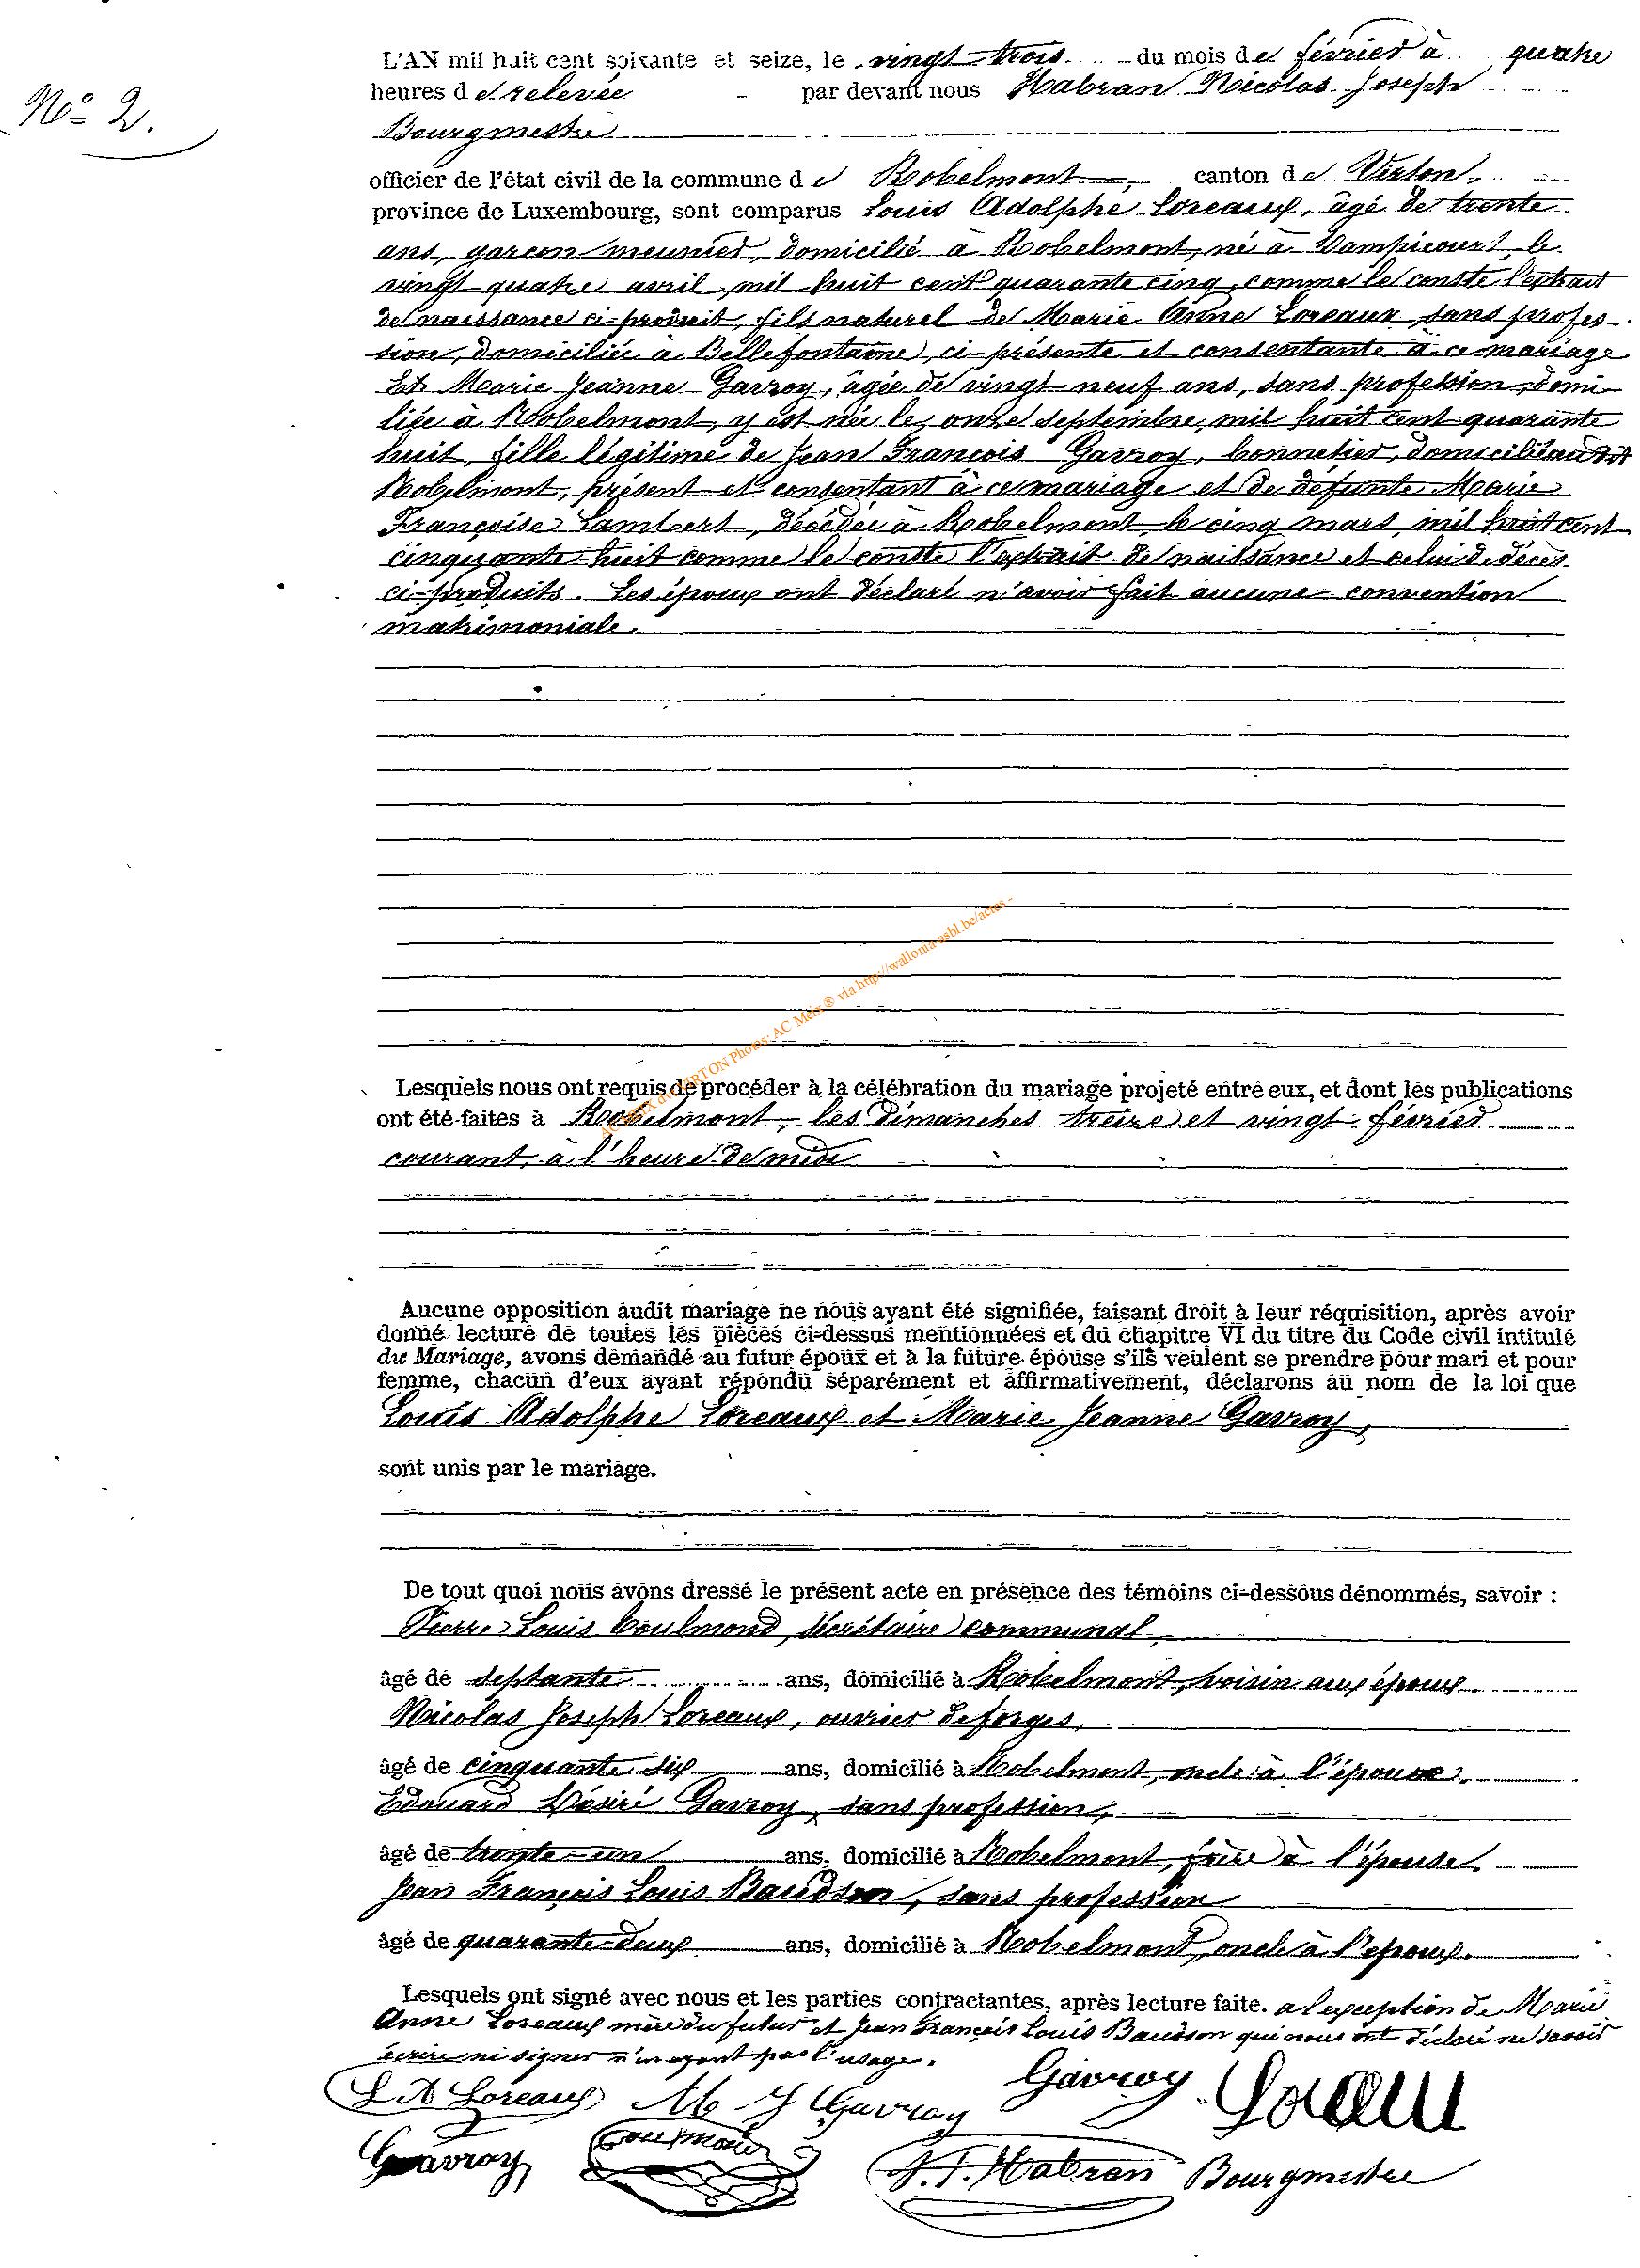 N° 2.
L'AN mil huit cent soixante et seize, le vingt-trois du mois de février à quatre
heures de relevée par devant nous Habran Nicolas Joseph
Bourgmestre
officier de l'état civil de la commune de Robelmont, canton de Virton,
province de Luxembourg, sont comparus Louis Adolphe Loreaux, âgé de trente
ans, garçon meunier, domicilié à Robelmont, né à Dampicourt le
vingt quatre avril, mil huit cent quarante cinq, comme le conste l'extrait
de naissance ci-produit, fils naturel de Marie Anne Loreaux, sans profes-
sion, domiciliée à Bellefontaine, ci-présente et consentante à ce mariage
Et Marie Jeanne Gavroy, âgée de vingt-neuf ans, sans profession, domi-
liée à Robelmont, y est née le onze septembre, mil huit cent quarante
huit, fille légitime de Jean François Gavroy, bonnetier, domicilié audit
Robelmont, présent et consentant à ce mariage et de défunte Marie
Françoise Lambert, décédée à Robelmont, le cinq mars, mil huit cent
cinquante-huit comme le conste l'extrait de naissance et celui de décès
ci-produits. Les époux ont déclaré n'avoir fait aucune convention
matrimoniale.
ACTEUX de VIRTON Photos: AC Meix ® via http://wallonia-asbl.be/actas -
Lesquels nous ont requis de procéder à la célébration du mariage projeté entre eux, et dont les publications
ont été faites à Robelmont, les dimanches treize et vingt février
courant, à l'heure de midi
Aucune opposition audit mariage ne nous ayant été signifiée, faisant droit à leur réquisition, après avoir
donné lecture de toutes les pièces ci-dessus mentionnées et du chapitre VI du titre du Code civil intitulé
du Mariage, avons demandé au futur époux et à la future épouse s'ils veulent se prendre pour mari et pour
femme, chacun d'eux ayant répondu séparément et affirmativement, déclarons au nom de la loi que
Louis Adolphe Loreaux et Marie Jeanne Gavroy,
sont unis par le mariage.
De tout quoi nous avons dressé le présent acte en présence des témoins ci-dessous dénommés, savoir :
Pierre Louis Coulmond, secrétaire communal,
âgé de septante ans, domicilié à Robelmont, voisin aux époux.
Nicolas Joseph Loreaux, ouvrier de forges,
âgé de cinquante six ans, domicilié à Robelmont, oncle à l'époux.
Edouard Désiré Gavroy, sans profession,
âgé de trente-un ans, domicilié à Robelmont, frère à l'épouse.
Jean François Louis Baudson, sans profession
âgé de quarante-deux ans, domicilié à Robelmont, oncle à l'époux.
Lesquels ont signé avec nous et les parties contractantes, après lecture faite. a l'exception de Marie
Anne Loreaux mère du futur et Jean François Louis Baudson qui nous ont déclaré ne savoir
écrire ni signer n'en ayant pas l'usage.
L A Loreaux M J Gavroy Gavroy Loreau
Gavroy Coulmond N. J. Habran Bourgmestre